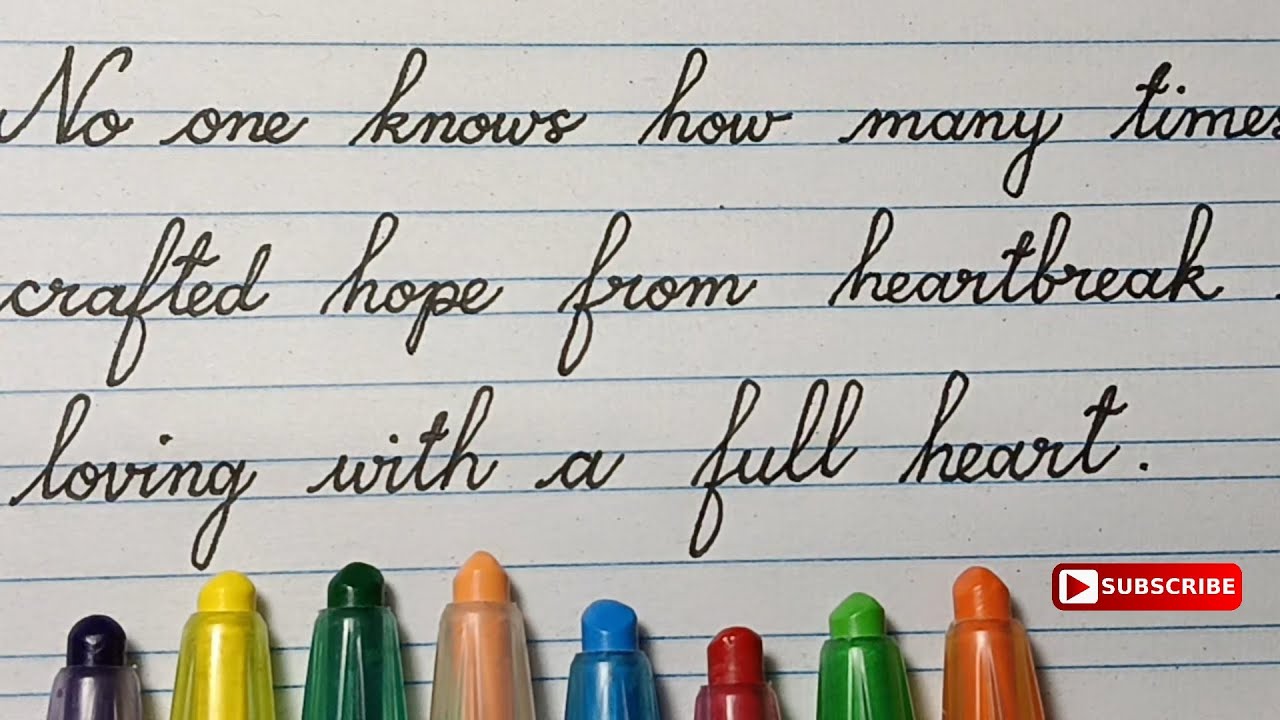 No one knows how many times
crafted hope from heartbreak
loving with a full heart.
SUBSCRIBE